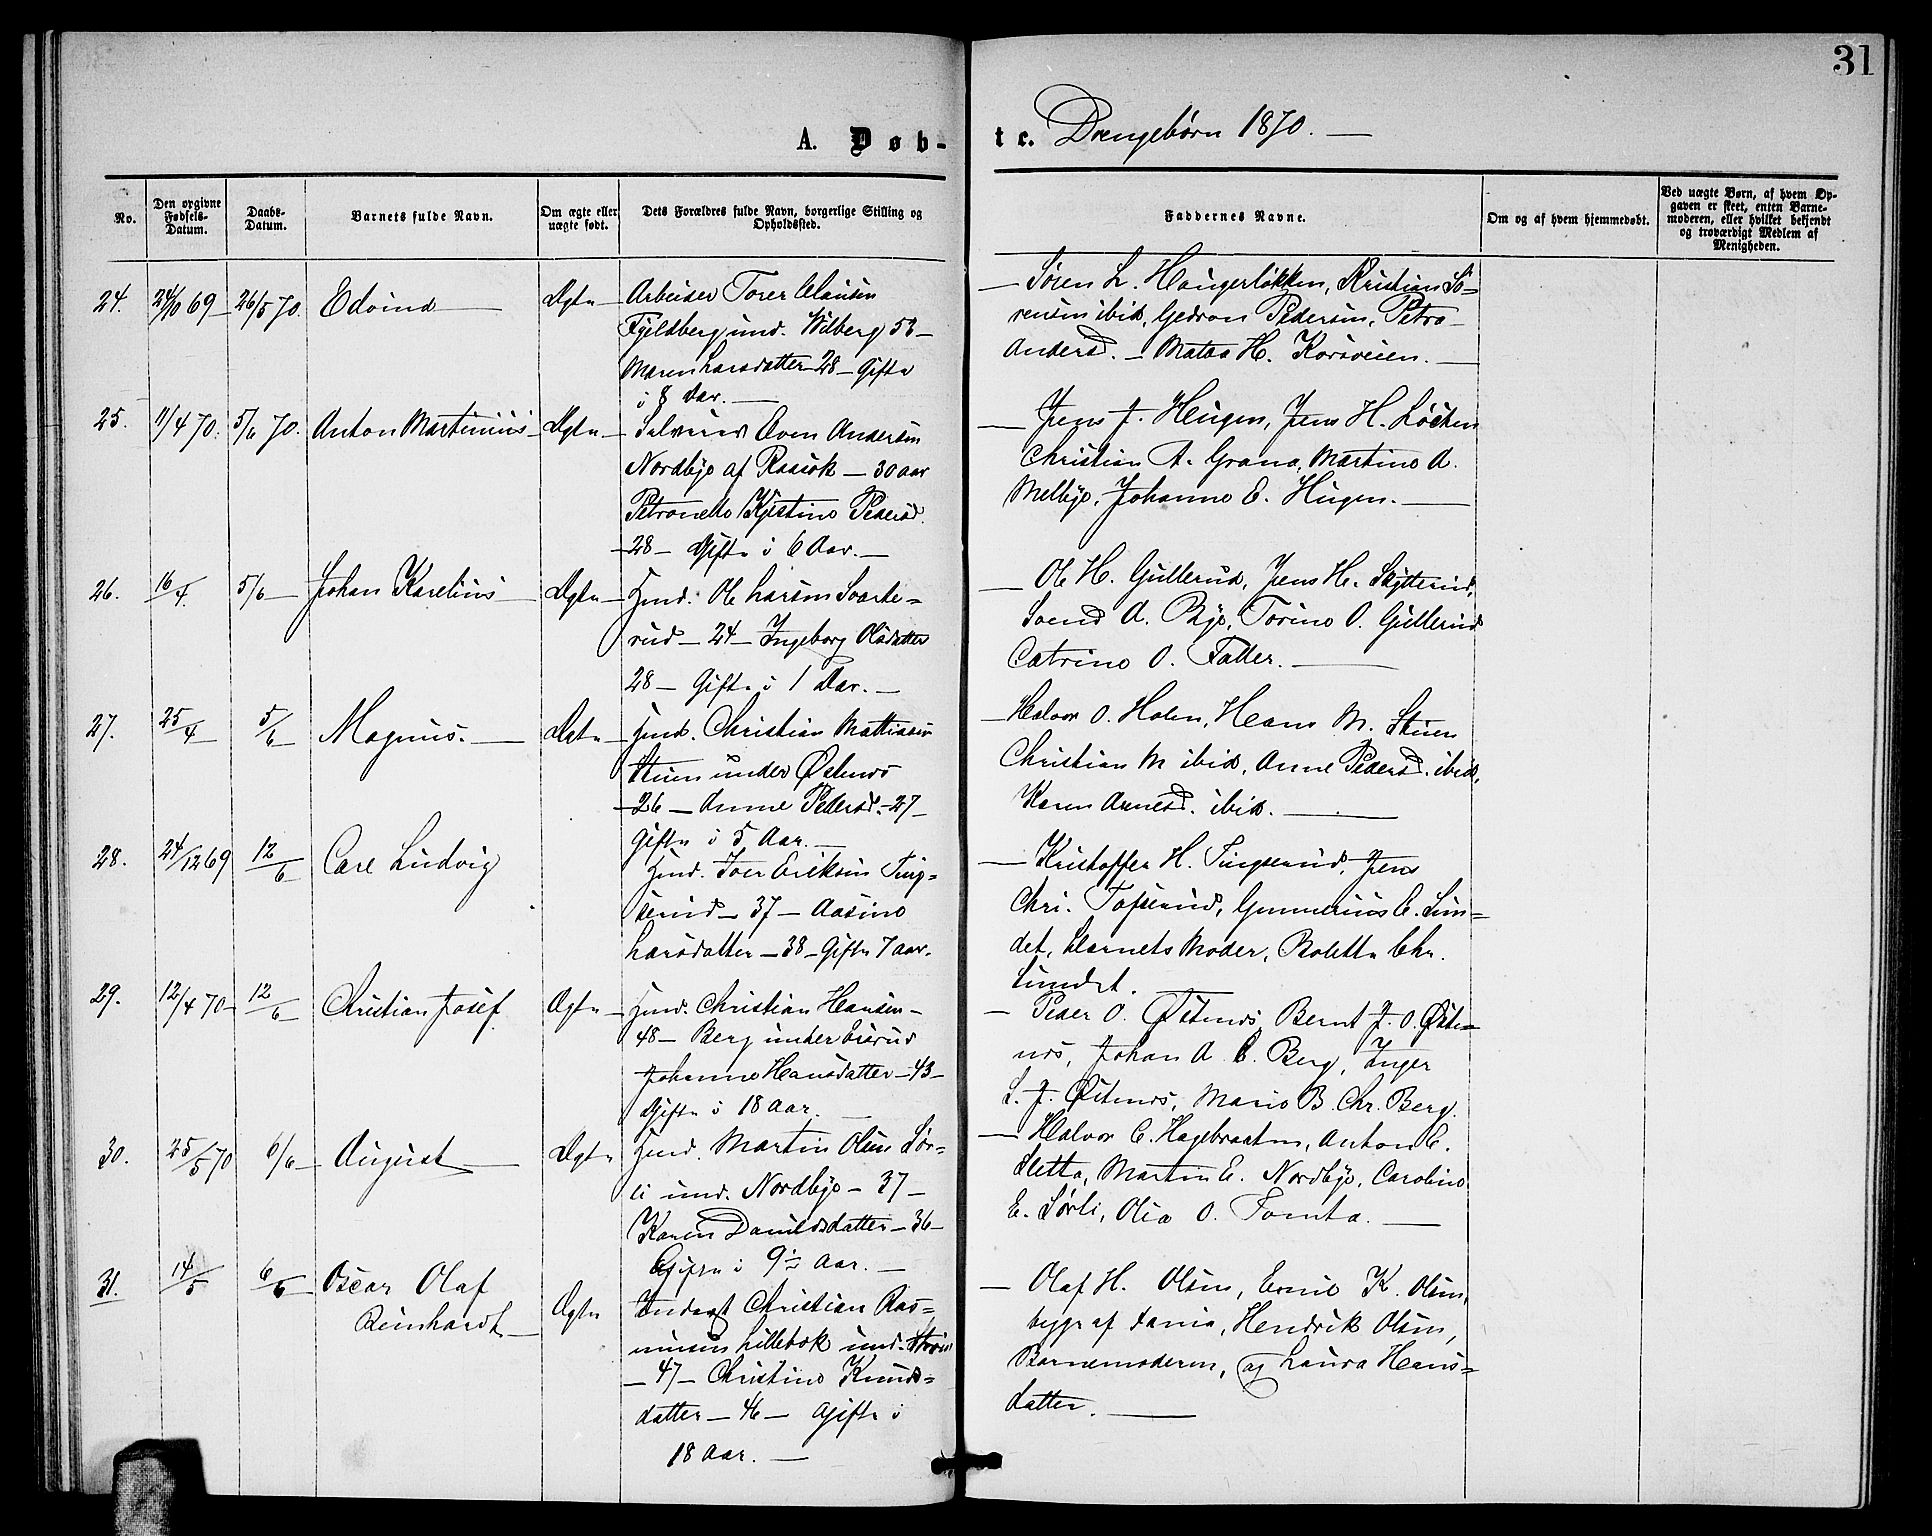 31
A. Døb-
te. Drengebørn 1870. —
No.
Den opgivne
Fødsels-
Datum.
Daabs-
Datum.
Barnets fulde Navn.
Om ægte eller
uægte født.
Dets Forældres fulde Navn, borgerlige Stilling og
Opholdssted.
Faddernes Navne.
Om og af hvem hjemmedøbt.
Ved uægte Børn, af hvem Op-
gaven er skeet, enten Barne-
moderen, eller hvilket bekjendt
og troværdigt Medlem af
Menigheden.
24. 24/10 69 — 26/5 70. Edvind — Ægte —
Arbeider Torer Clausen
Fjeldberg und. Wilberg 56 —
Maren Larsdatter 28 — Gifte
i 8 Aar. —
— Søren L. Haugerløkken, Kristian Sø=
rensen ibid, Pedersen, Petra
Andersd. — H. Korsveien. —
25. 11/4 70. 5/6 70. Anton Martinius — Ægte —
Selveier Even Andersen
Nordbye af Raaiok — 30 aar
Petronelle Kjestine Pedersd.
— 28 — Gifte i 6 Aar. —
— Jens J. Heugen, Jens H. Løken
Christian A. Grana, Martine A.
Melbye, Johanne E. Hugen. —
26. 16/4. 5/6 — Johan Karelius — Ægte —
Hmd. Ole Larsen Svarte=
rud — 24 — Ingeborg Olsdatter
28 — Gifte i 1 Aar. —
— Ole H. Gullerud, Jens H. Skytterud,
Svend A. Bye, Torine O. Gullerud
Catrine O. Faller. —
27. 25/4 — 5/6 — Magnus. — Ægte —
Hmd. Christian Mattissen
Stuen under Østenes
— 26 — Anne Pedersd. — 27 —
Gifte i 5 Aar. —
— Halvor O. Holen, Hans M. Stuen
Christian M ibid, Anne Pedersd. ibid,
Karen Arnesd. ibid. —
28. 24/12 69 12/6 — Carl Ludvig
Hmd. Iver Eriksen Ting=
serud — 37 — Aasine
Larsdatter — 38 — Gifte 7 aar.
— Kristoffer H. Tingserud, Jens
Chr. Tofserud, Gunnerius C. Lun=
det, Barnets Moder, Bolette Chr.
Lundet.
29. 12/4 70 — 12/6 — Christian Josef. Ægte —
Hmd. Christian Hansen —
48 — Berg under
Johanne Hansdatter — 43 —
Gifte i 18 Aar. —
— Peder O. Østenes, Bernt J. O. Øste=
nes, Johan A. C. Berg, Inger
L. J. Østenes, Marie B. Chr. Berg.
30. 25/5 70 6/6 — August — Ægte
Hmd. Martin Olsen Sør=
li und. Nordbye — 37 —
Karen Danielsdatter — 36 —
Gifte i 9½ Aar. —
— Halvor C. Hagebraaten, Anton C.
Sletta, Martin E. Nordbye, Caroline
E. Sørli, Olea O. Tomta. —
31. 14/5 6/6 Oscar Olaf
Reinhardt — Ægte
Christian Ras=
musen Lillebok und.
— 47 — Christine Knuds=
datter — 46 — Gifte i
18 Aar. —
— Olaf H. Olsen, K. Olsen,
begge af Dania, Hendrik Olsen,
Barnemoderen, og Laura Hans=
datter. —